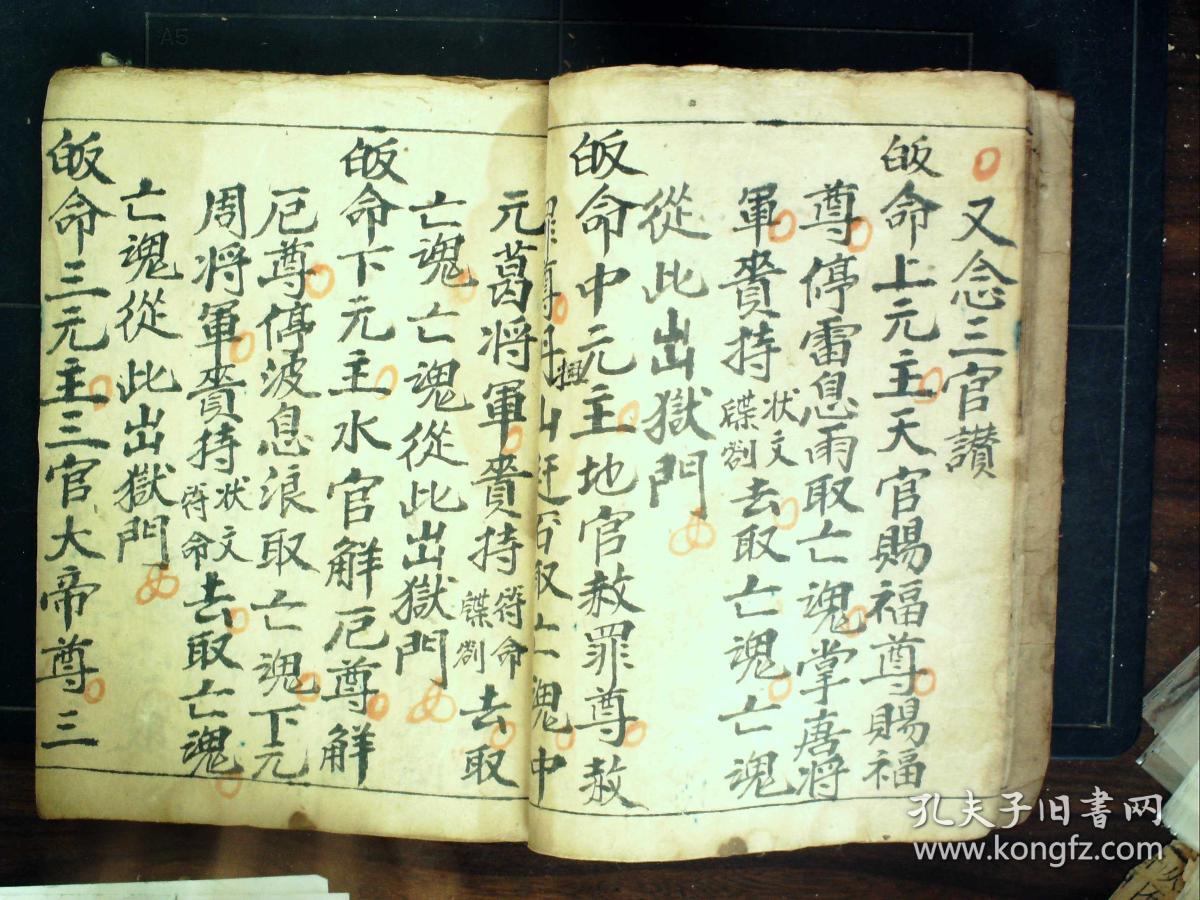 又念三官讃
皈命上元主天官賜福尊賜福
尊停雷息雨取亡魂掌唐将
軍賫持状文牒劄去取亡魂亡魂
從此出獄門
皈命中元主地官赦罪尊赦
罪尊 山 取亡魂中
元葛将軍賫持符命牒劄去取
亡魂亡魂從此出獄門
皈命下元主水官解厄尊解
厄尊停波息浪取亡魂下元
周将軍賫持状文符命去取亡魂
亡魂從此出獄門
皈命三元主三官大帝尊三
孔夫子旧书网
www.kongfz.com
A5